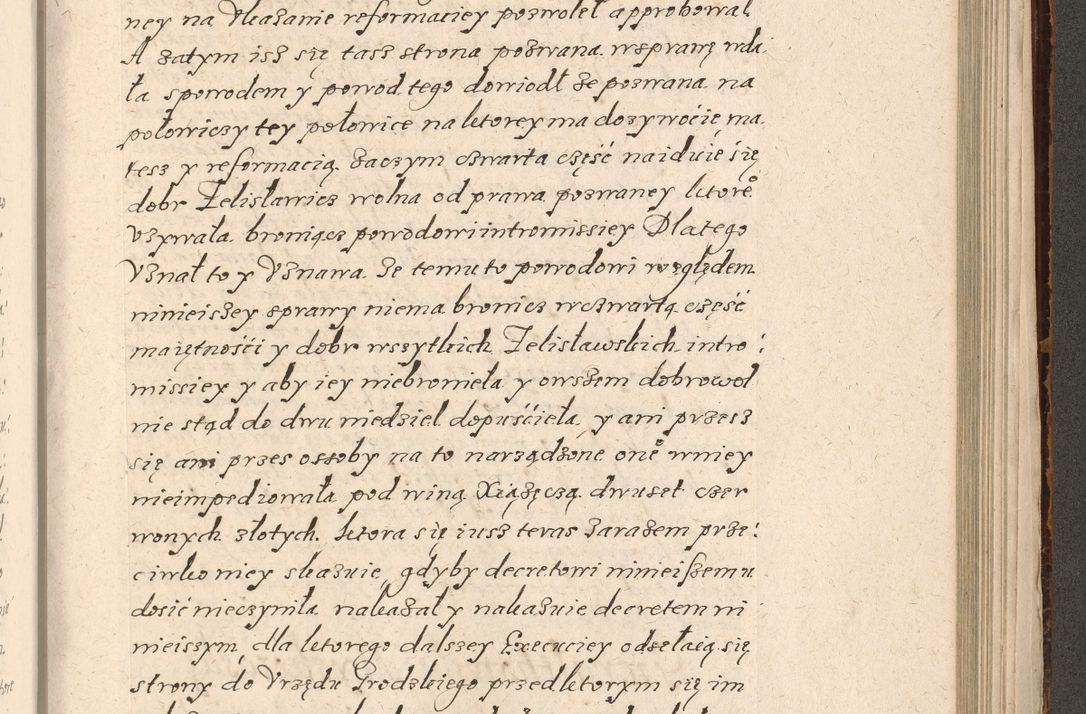 ney na Ukazanie reformaciey pozwoleł approbował
A zatym isz się tasz strona pozwana wsprawę wda
ła spowodem y powod tego dowiodł że pozwana na
połowiczy tey połowice na ktorey ma dozywocie ma
tesz y reformacią. zaczym czwarta część naiduie się
dobr Zelisławicz wolna od prawa pozwaney ktore°
Uzywała broniącz powodowi intromissiey Dlatego
Uznał to y Uznawa że temu to powodowi względem
ninieiszey sprawy niema bronicz wczwartą część
maiętności y dobr wszytkich Zelisławskich intro:
missiey y aby iey niebronieła y owszem dobrowol
nie stąd do dwu niedziel dopuścieła, y ani przesz
się ani przes ossoby na to narządzone one° wniey
nieimpediowała pod winą Xiążęczą dwuset czer
wonych złotych. ktora się iusz teras zarazem prze:
ciwko niey skazuie, gdyby decretowi ninieiszemu
dosić nieczyniła nakazał y nakazuie decretem ni
nieiszym, dla ktorego dalszey Execuciey odsełaią się
strony do Urzędu Grodzkiego przed ktorym się im